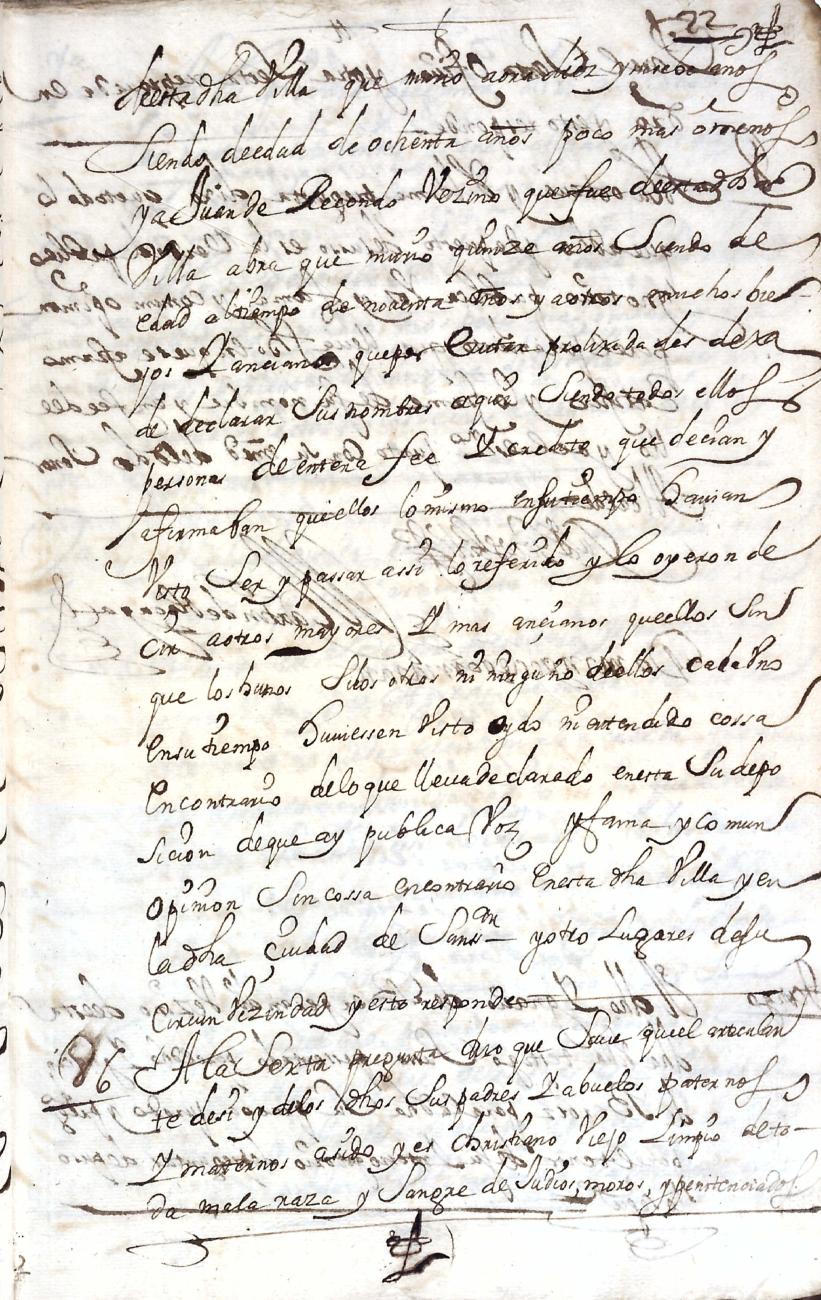 22
de esta dha Villa que murio abra diez y nuebe años
Siendo de edad de ochenta años poco mas o menos
y a Juan de Recondo Vezino que fue de esta dha
Villa abra que murio quinze años Siendo de
edad al tiempo de noventa años y a otros muchos bie
jos y ancianos que por evitar prolixidades dexa
de declarar Sus nombres aqui Siendo todos ellos
personas de entera fee y credito que decian y
afirmaban que ellos lo mismo en su tiempo havian
Visto Ser y passar assi lo referido y lo oyeron de
cir a otros mayores y mas ancianos que ellos Sin
que los hunos ni los otros ni ninguno de ellos cada Vno
en su tiempo huviessen Visto oydo ni entendido cossa
en contrario de lo que lleva declarado en esta Su depo
sicion de que ay publica Voz y fama y comun
opinion Sin cossa en contrario en esta dha Villa y en
la dha Ciudad de San Ssn y otro Lugares de su
circunVezindad y esto responde
6 A la Sexta pregunta dixo que Save que el articulan
te de si y de los dhos Sus padres y abuelos paternos
y maternos a sido y es christiano Viejo Limpio de to
da mala raza y Sangre de Judios, moros, y penitenciados